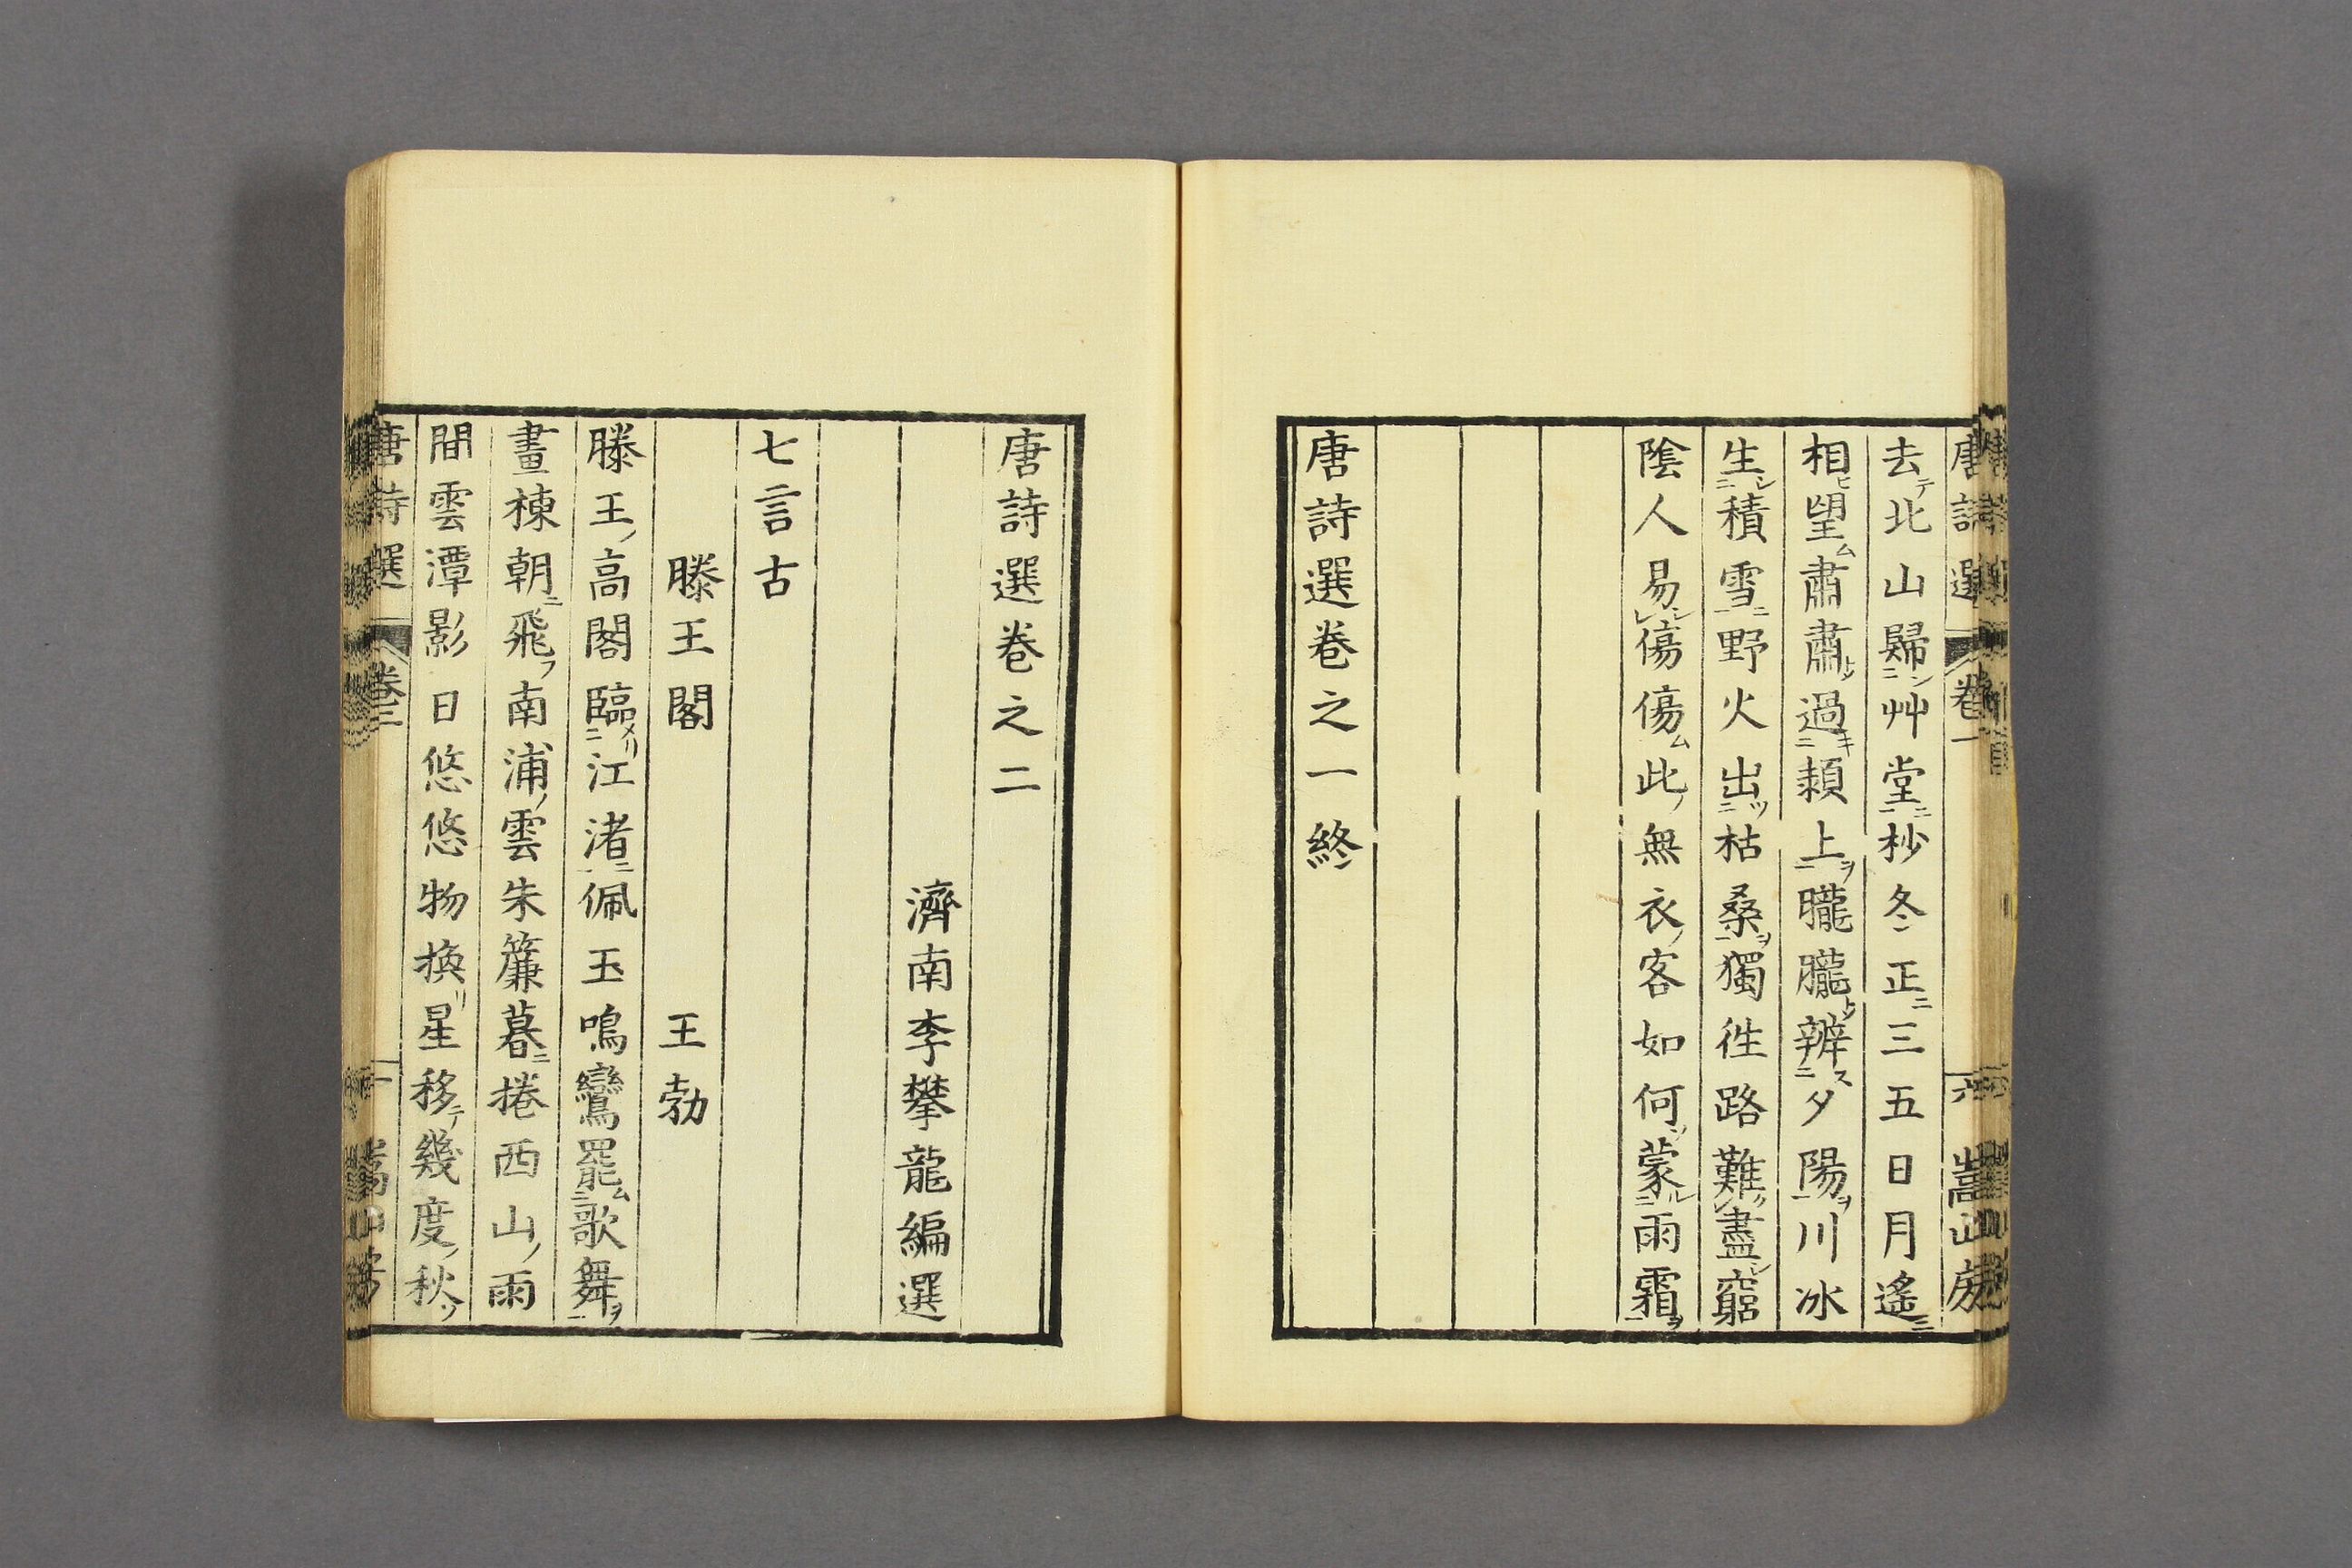 唐詩選 卷一 六 嵩山房
去テ北山歸ン二艸堂ニ一杪冬正ニ三五日月遙ニ
相ヒ望ム肅肅トシテ過キ二頴上ヲ一朧朧トシテ辨ス二夕陽ヲ一川冰
生シ二積雪ニ一野火出ツ二枯桑ヲ一獨徃路難シレ盡シ窮
陰人易シレ傷傷ム此ノ無衣ノ客如何ソ蒙ル二雨霜ヲ一
唐詩選卷之一終
唐詩選卷之二
濟南李攀龍編選
七言古
滕王閣 王勃
滕王ノ高閣臨メリ二江渚ニ一佩玉鳴鸞罷ム二歌舞ヲ一
畫棟朝ニ飛フ南浦ノ雲朱簾暮ニ捲西山ノ雨
間雲潭影日悠悠物換リ星移テ幾度ノ秋ソ
唐詩選 卷二 一 嵩山房